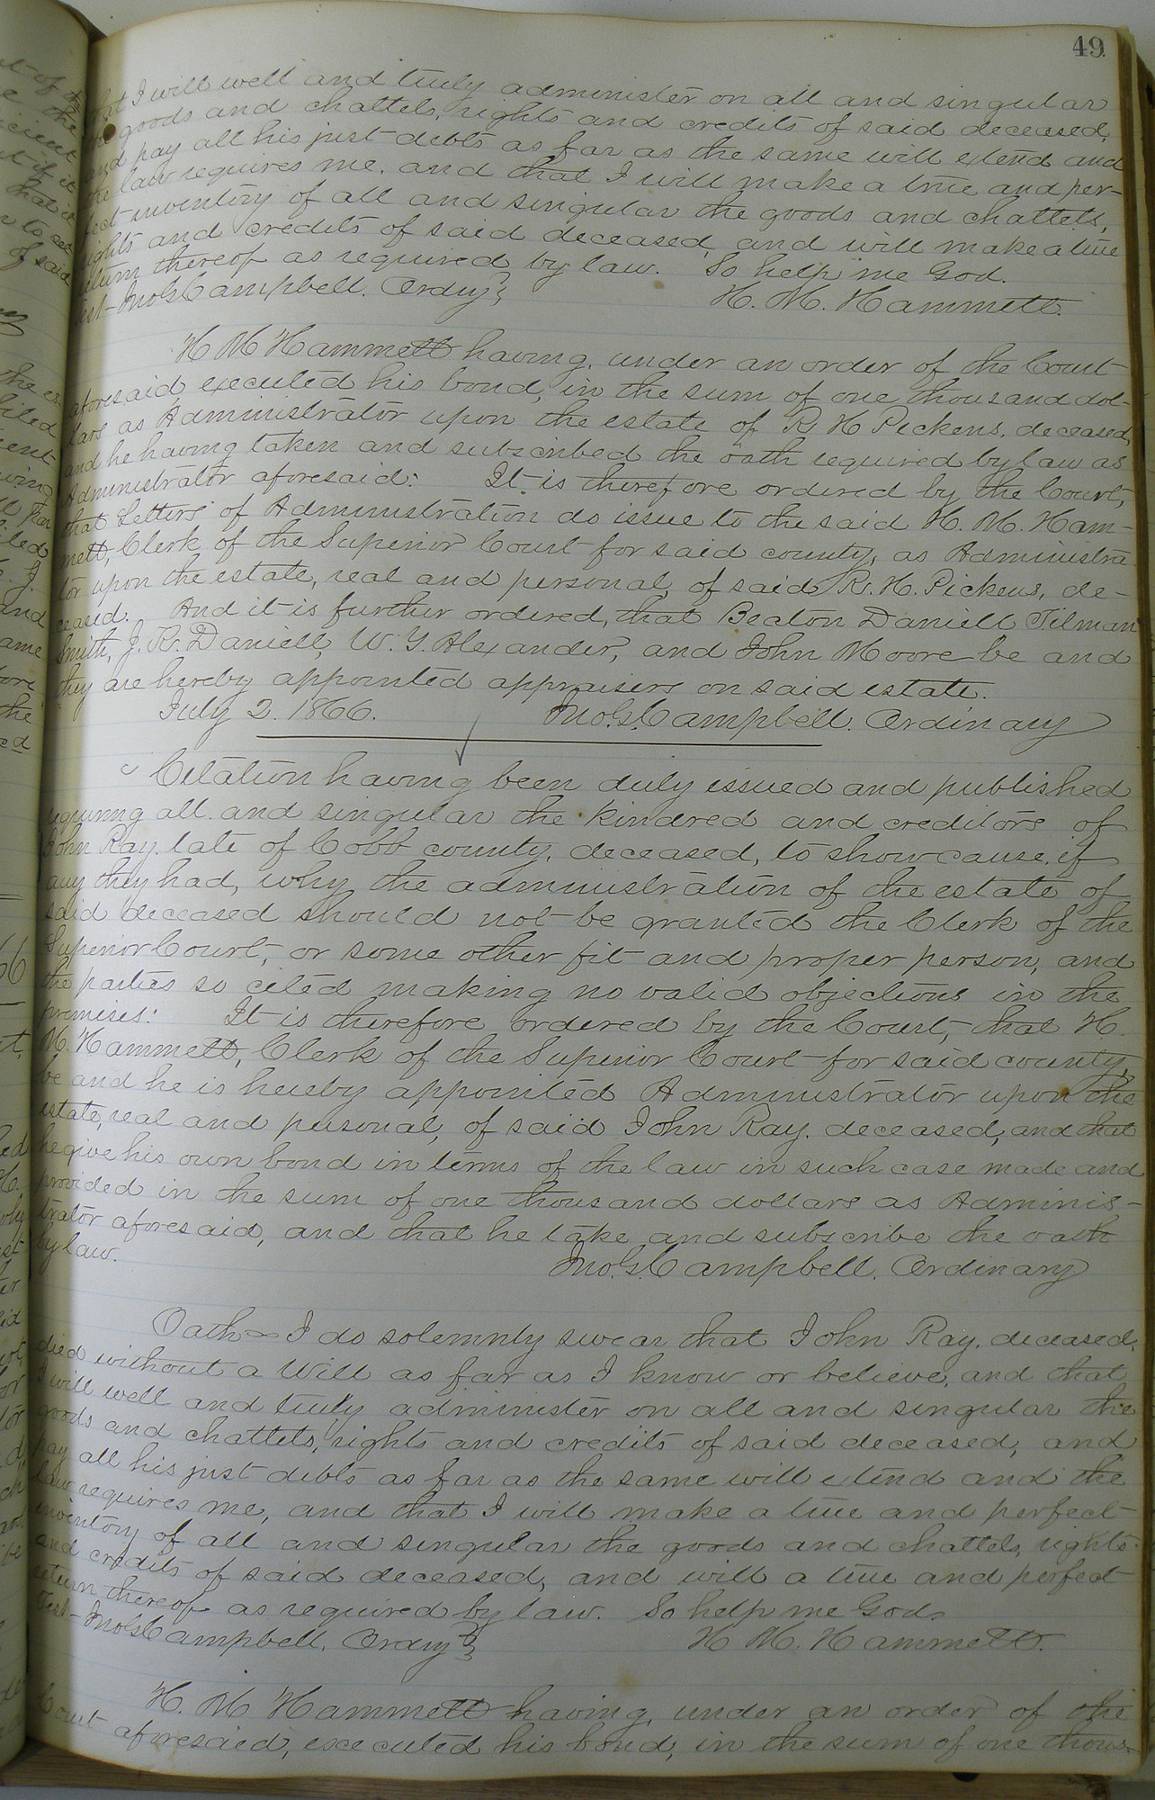 49.
that I will well and truly administer on all and singular
the goods and chattels, rights and credits of said deceased,
and pay all his just debts as far as the same will extend and
the law requires me, and that I will make a true and per-
fect inventory of all and singular the goods and chattels,
rights and credits of said deceased, and will make a true
return thereof as required by law. So help me God.
Test- Jno. G. Campbell. Ordny. H. M. Hammett.
H M Hammett having, under an order of the Court
aforesaid executed his bond, in the sum of one thousand dol-
lars as Administrator upon the estate of R H Pickens, deceased,
and he having taken and subscribed the oath required by law as
Administrator aforesaid: It is therefore ordered by the Court,
that Letters of Administration do issue to the said H. M. Ham-
mett, Clerk of the Superior Court for said county, as Administra
tor upon the estate, real and personal, of said R. H. Pickens, de-
ceased. And it is further ordered, that Beaton Daniell Tilman
Smith, J. R. Daniell, W. Y. Alexander, and John Moore be and
they are hereby appointed appraisers on said estate.
July 2. 1866. Jno. G. Campbell. Ordinary
Citation having been duly issued and published
requiring all and singular the kindred and creditors of
John Ray. late of Cobb county, deceased, to show cause, if
any they had, why the administration of the estate of
said deceased should not be granted the Clerk of the
Superior Court, or some other fit and proper person, and
the parties so cited making no valid objections in the
premises: It is therefore ordered by the Court, that H.
M. Hammett, Clerk of the Superior Court for said county,
be and he is hereby appointed Administrator upon the
estate, real and personal, of said John Ray. deceased, and that
he give his own bond in terms of the law in such case made and
provided in the sum of one thousand dollars as Adminis-
trator aforesaid, and that he take and subscribe the oath
by law. Jno. G. Campbell. Ordinary
Oath I do solemnly swear that John Ray. deceased,
died without a Will as far as I know or believe, and that
I will well and truly administer on all and singular the
goods and chattels, rights and credits of said deceased, and
pay all his just debts as far as the same will extend and the
law requires me, and that I will make a true and perfect
inventory of all and singular the goods and chattels, rights
and credits of said deceased, and will a true and perfect
return thereof as required by law. So help me God.
Test- Jno. G. Campbell. Ordny. H. M. Hammett.
H. M Hammett having, under an order of the
Court aforesaied, executed his bond, in the sum of one thous-